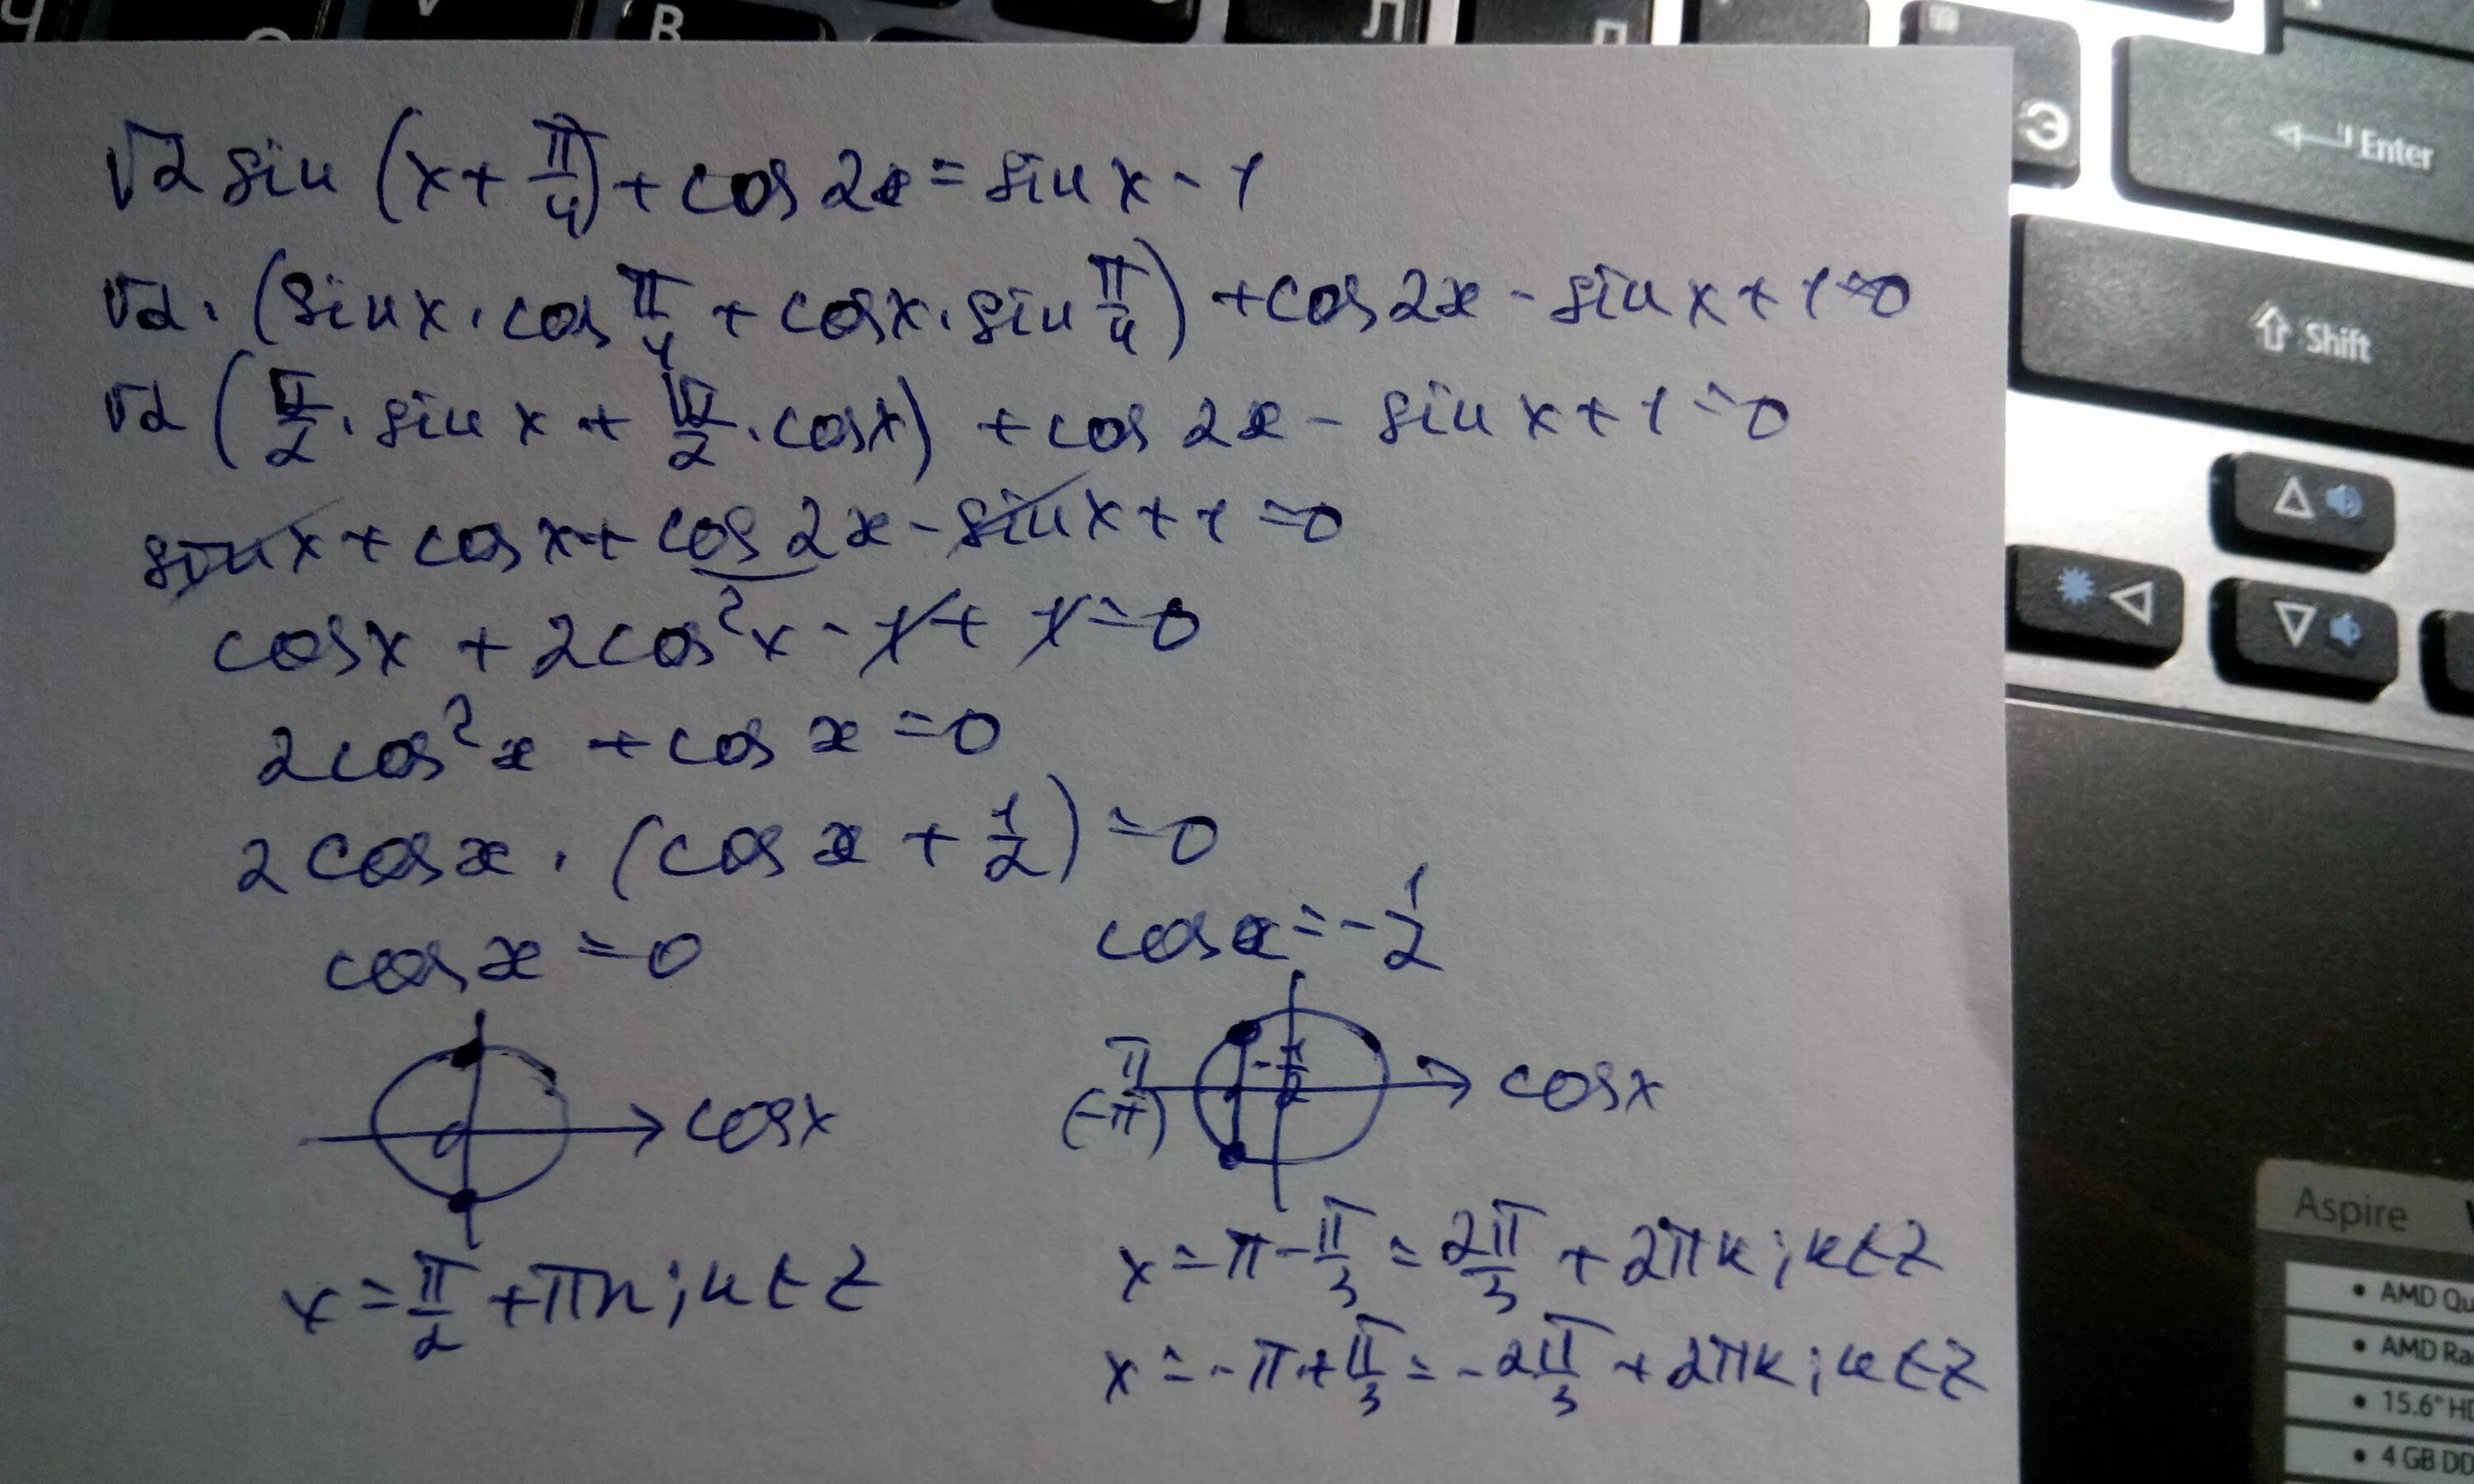 Ч
V
В
Л
П
Э
Enter
Shift
√2 sin (x + π/4) + cos 2x = sin x - 1
√2 · (sin x · cos π/4 + cos x · sin π/4) + cos 2x - sin x + 1 = 0
√2 (√2/2 · sin x + √2/2 · cos x) + cos 2x - sin x + 1 = 0
sin x + cos x + cos 2x - sin x + 1 = 0
cos x + 2cos²x - 1 + 1 = 0
2cos²x + cos x = 0
2cos x · (cos x + 1/2) = 0
cos x = 0
cos x = -1/2
0
cos x
π
(-π)
-1/2
cos x
x = π/2 + πn; n ∈ Z
x = π - π/3 = 2π/3 + 2πk; k ∈ Z
x = -π + π/3 = -2π/3 + 2πk; k ∈ Z
Aspire
• AMD Qu
• AMD Ra
• 15.6" HD
• 4 GB DD